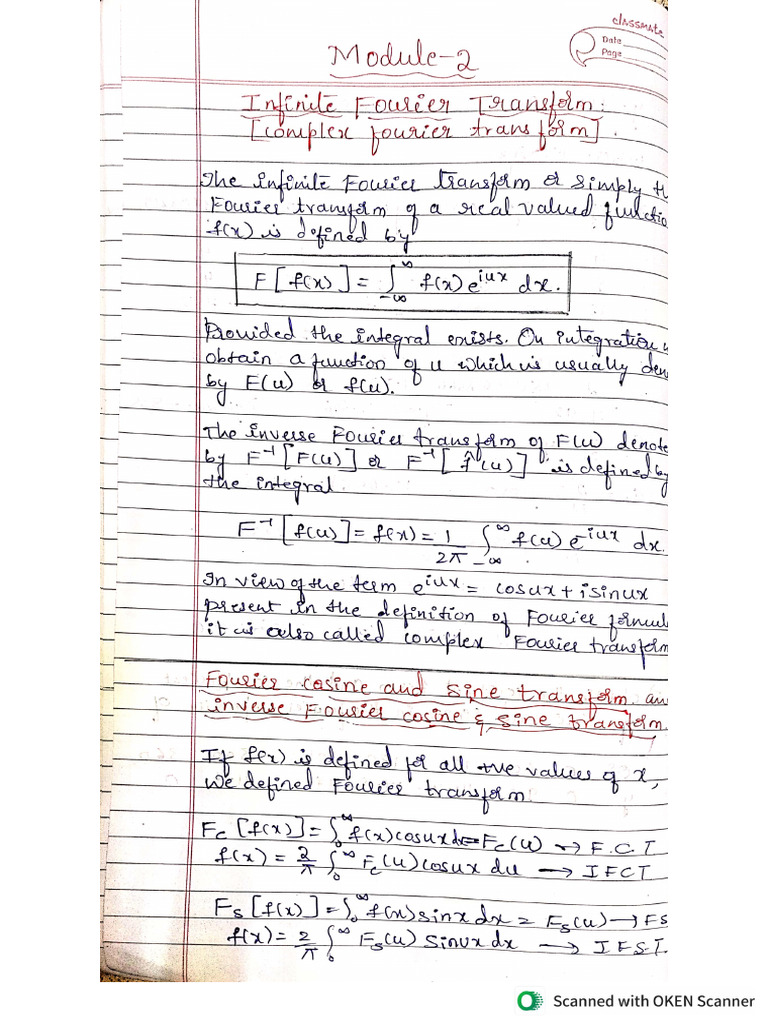 classmate
Date
Page
Module-2
Infinite Fourier Transform:
[complex fourier transform].
The infinite Fourier transform or simply th
Fourier tranform of a real valued functio
f(x) is defined by
F[f(x)] = ∫_{-∞}^{∞} f(x) e^{iux} dx.
Provided the integral exists. On integration w
obtain a function of u which is usually den
by F(u) or f(u).
The inverse Fourier transform of F(u) denote
by F⁻¹[F(u)] or F⁻¹[f̂(u)] is defined by
the integral
F⁻¹[f(u)] = f(x) = 1/2π ∫_{-∞}^{∞} f(u) e^{iux} dx.
In view of the term e^{iux} = cosux + isinux
present in the definition of Fourier formul
it is also called complex Fourier transform
Fourier cosine and sine transform an
inverse Fourier cosine & sine transform.
If f(x) is defined for all +ve values of x,
we defined Fourier transform.
F_c[f(x)] = ∫_0^∞ f(x) cosux dx = F_c(u) → F.C.T
f(x) = 2/π ∫_0^∞ F_c(u) cosux du → IFCT
F_s[f(x)] = ∫_0^∞ f(x) sinx dx = F_s(u) → FS
f(x) = 2/π ∫_0^∞ F_s(u) sinux dx → IFS.T.
Scanned with OKEN Scanner